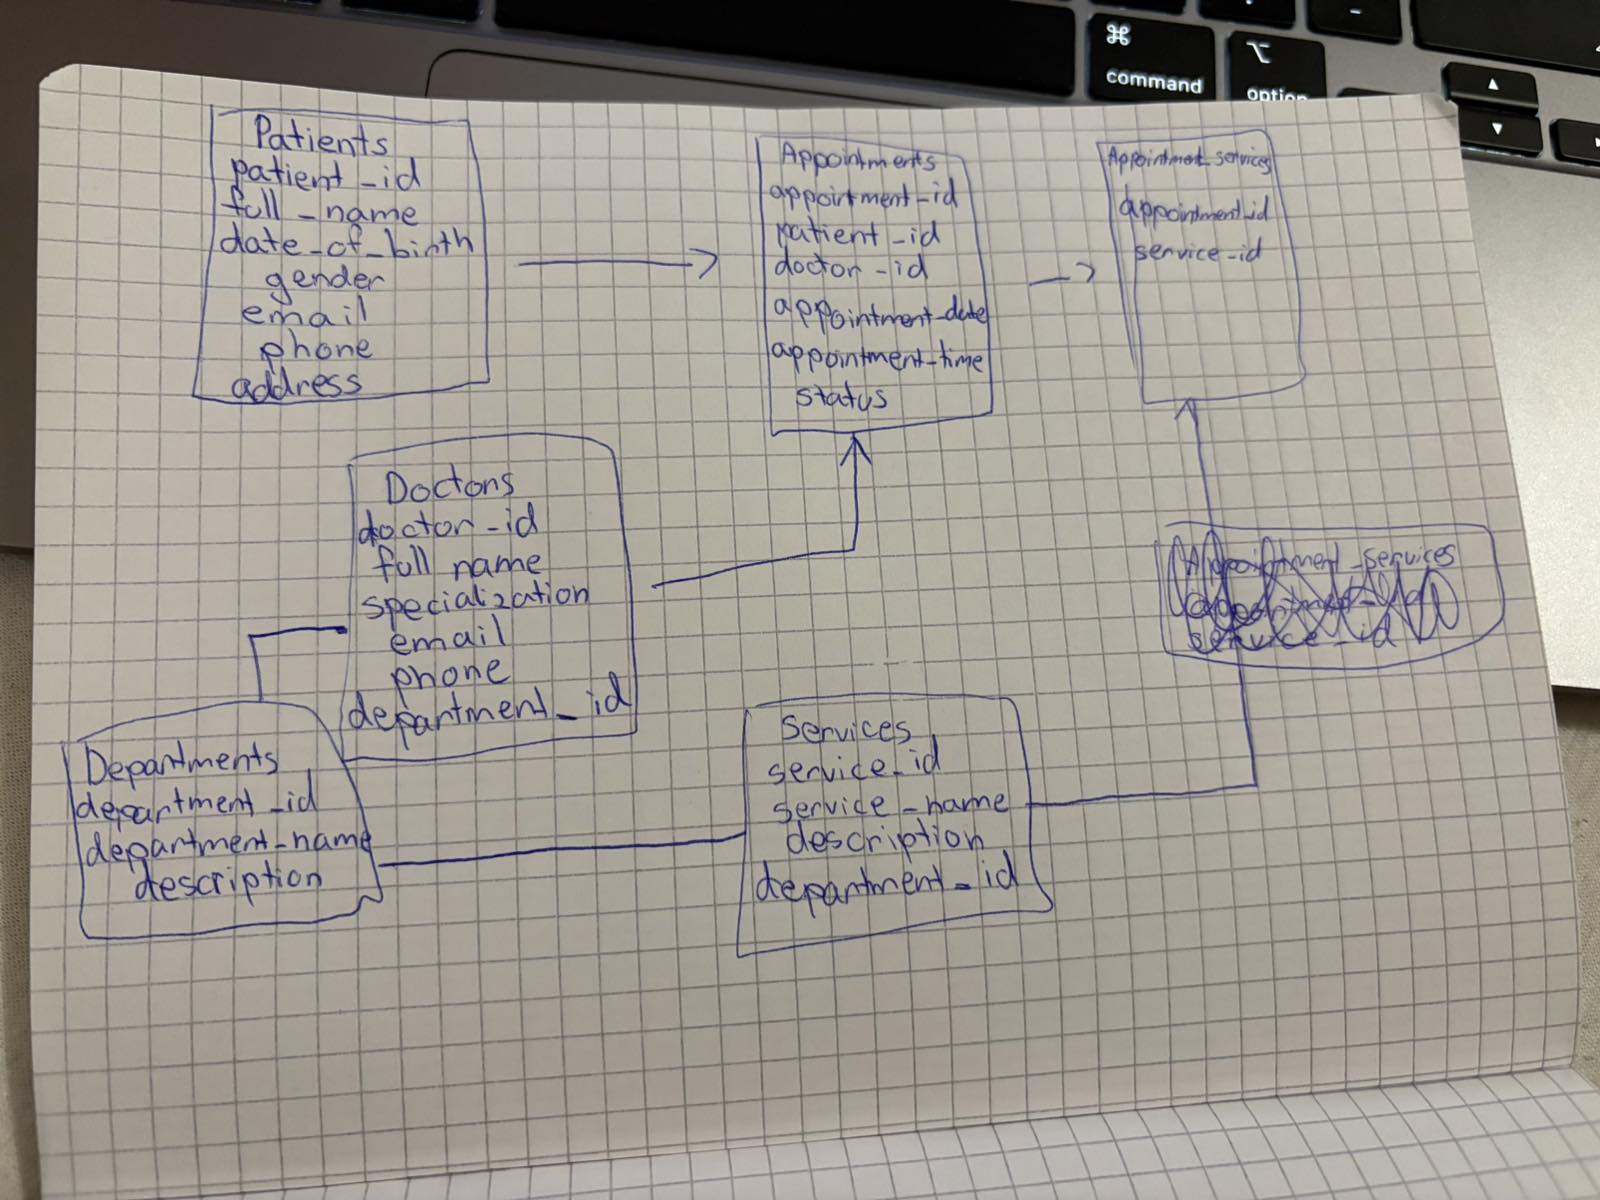 ⌘
command
⌥
option
Patients
patient_id
full_name
date_of_birth
gender
email
phone
address
Appointments
appointment_id
patient_id
doctor_id
appointment_date
appointment_time
status
Appointment_services
appointment_id
service_id
Doctors
doctor_id
full name
specialization
email
phone
department_id
Appointment_services
service_id
Departments
department_id
department_name
description
Services
service_id
service_name
description
department_id